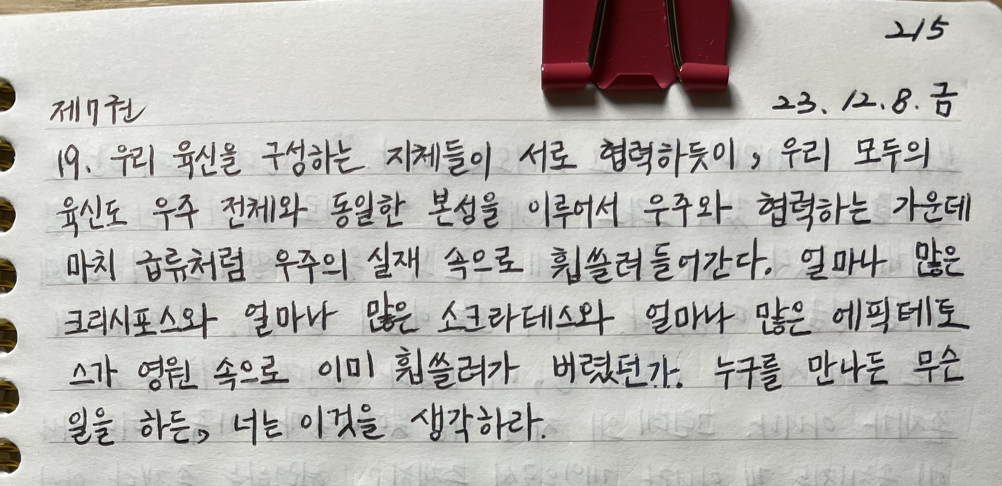 215
제7권 23. 12. 8. 금
19. 우리 육신을 구성하는 지체들이 서로 협력하듯이, 우리 모두의
육신도 우주 전체와 동일한 본성을 이루어서 우주와 협력하는 가운데
마치 급류처럼 우주의 실재 속으로 휩쓸려들어간다. 얼마나 많은
크리시포스와 얼마나 많은 소크라테스와 얼마나 많은 에픽테토
스가 영원 속으로 이미 휩쓸려가 버렸던가. 누구를 만나든 무슨
일을 하든, 너는 이것을 생각하라.